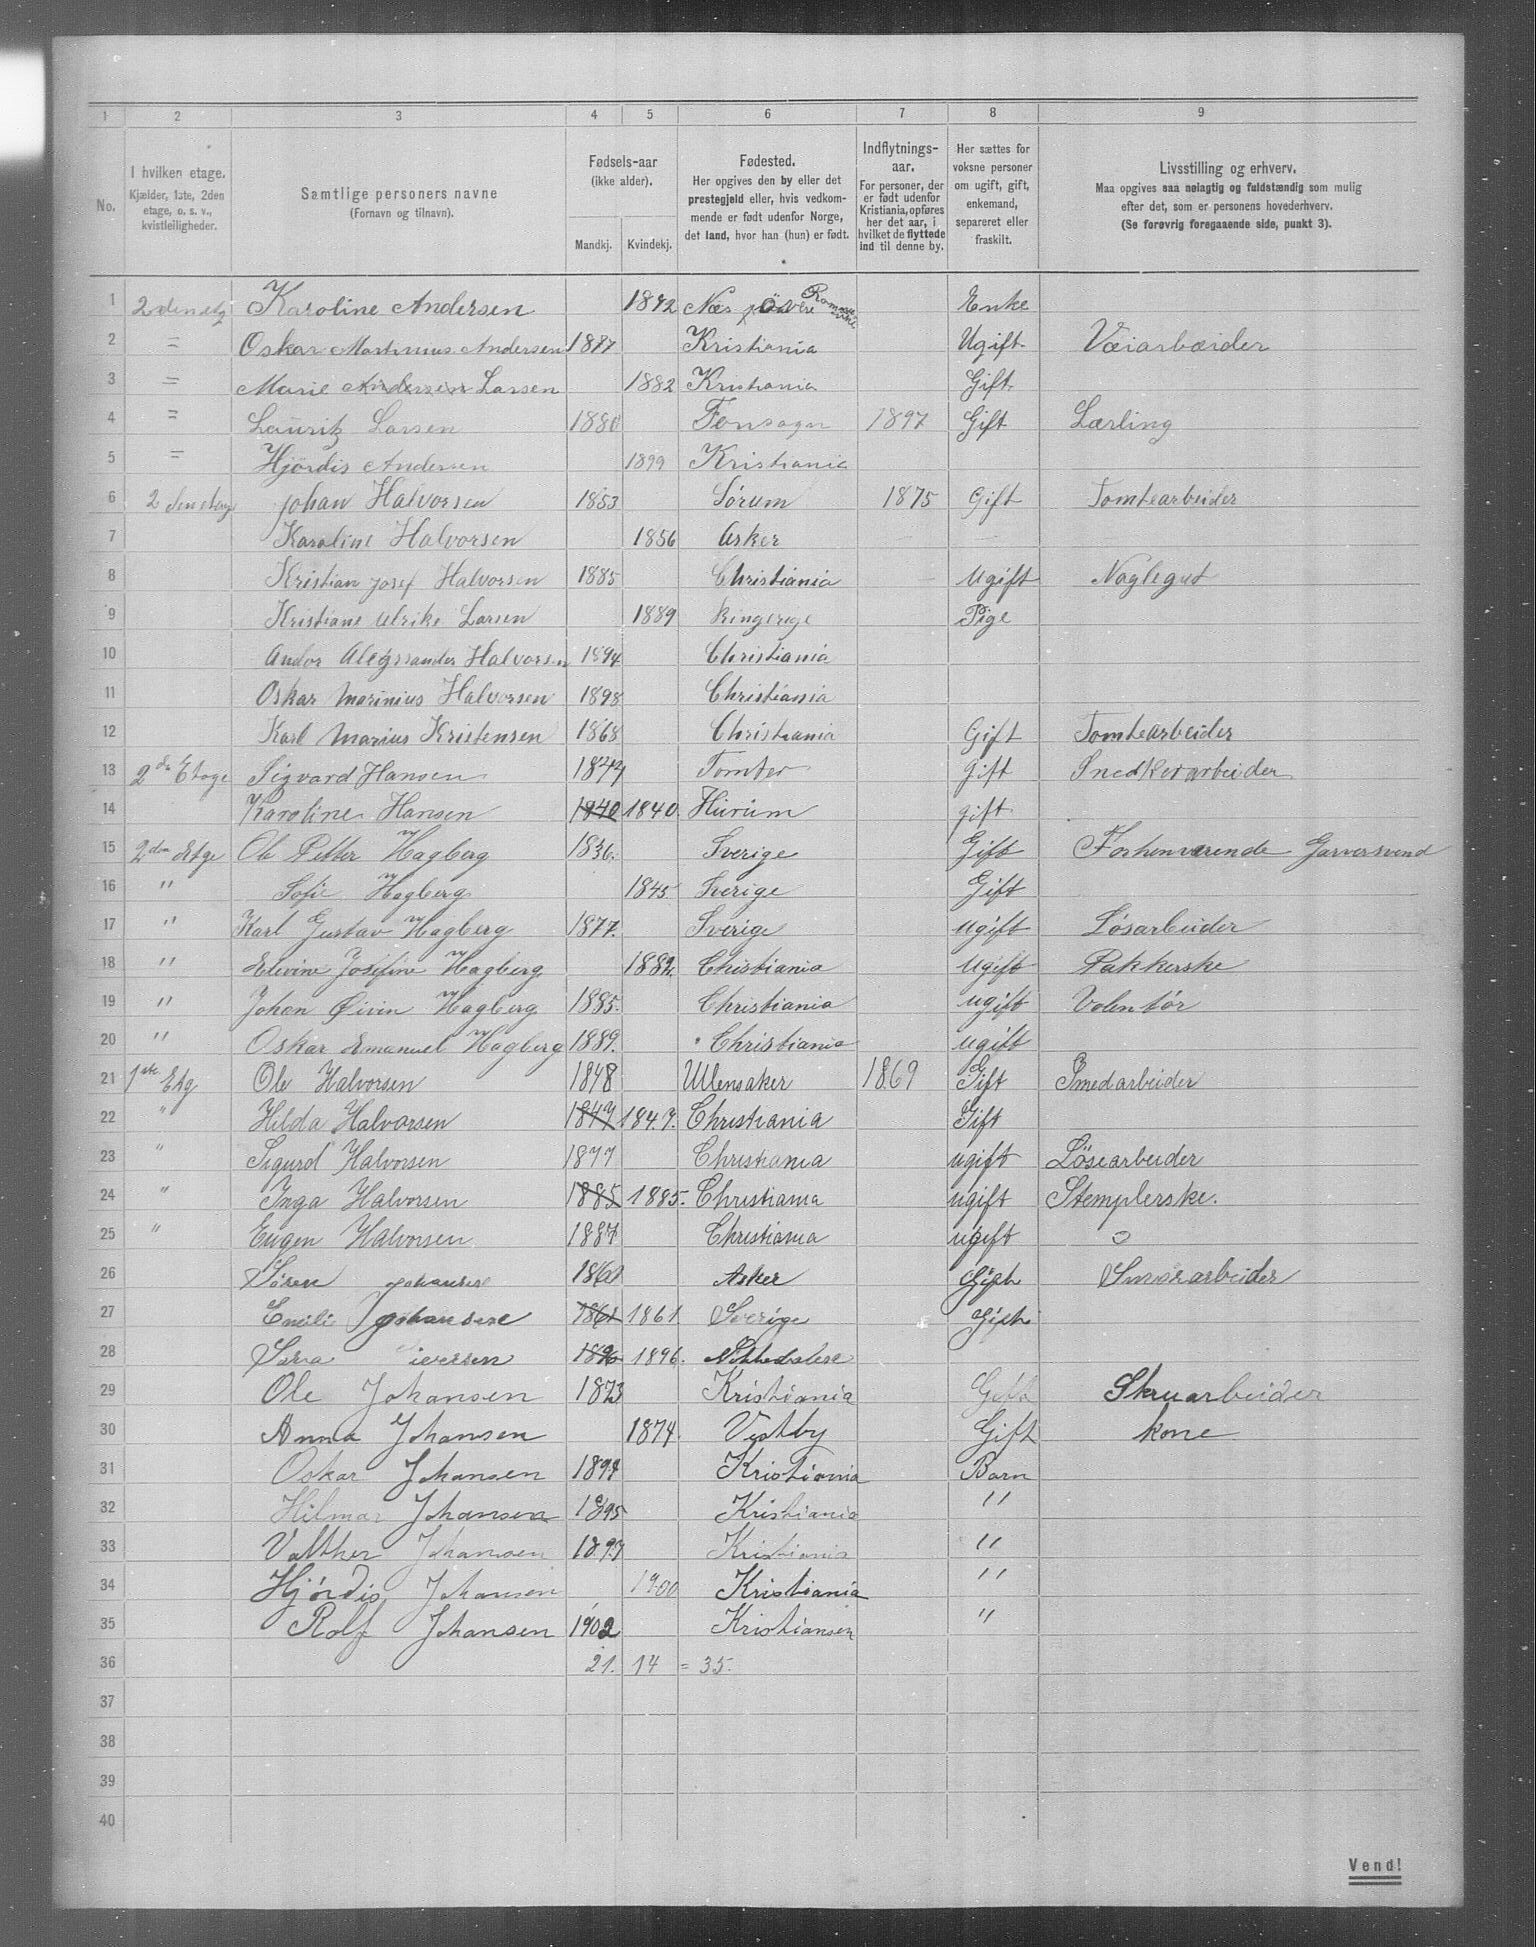 1 2 3 4 5 6 7 8 9
No. I hvilken etage. Kjælder, 1ste, 2den etage, o. s. v., kvistleiligheder. Samtlige personers navne (Fornavn og tilnavn). Fødsels-aar (ikke alder). Mandkj. Kvindekj. Fødested. Her opgives den by eller det prestegjeld eller, hvis vedkommende er født udenfor Norge, det land, hvor han (hun) er født. Indflytnings-aar. For personer, der er født udenfor Kristiania, opføres her det aar, i hvilket de flyttede ind til denne by. Her sættes for voksne personer om ugift, gift, enkemand, separeret eller fraskilt. Livsstilling og erhverv. Maa opgives saa nøiagtig og fuldstændig som mulig efter det, som er personens hovederhverv. (Se forøvrig foregaaende side, punkt 3).
1 2den etg Karoline Andersen 1842 Næs Enke
2 = Oskar Martinius Andersen 1877 Kristiania Ugift Veiarbeider
3 = Marie Andersen Larsen 1882 Kristiania Gift
4 = Lauritz Larsen 1880 Fonsogn 1897 Gift Lærling
5 = Hjördis Andersen 1899 Kristiania
6 2den etage Johan Halvorsen 1853 Sørum 1875 Gift Tomtearbeider
7 Karoline Halvorsen 1856 Asker
8 Kristian Josef Halvorsen 1885 Christiania Ugift Naglegut
9 Kristiane Ulrike Larsen 1889 Ringerige Pige
10 Andor Halvorsen 1894 Christiania
11 Oskar Marinius Halvorsen 1898 Christiania
12 Karl Marius Kristensen 1868 Christiania Gift Tomtearbeider
13 2de Etage Sigvard Hansen Tomter Gift Snedkerarbeider
14 Karoline Hansen 1840 1840. Hurum gift
15 2den Etge Ole Petter Hagberg 1836. Sverige Gift Forhenværende Garversvend
16 " Sofie Hagberg 1845 Sverige Gift
17 " Karl Gustav Hagberg 1877. Sverige ugift Løsarbeider
18 " Elevine Josefine Hagberg 1882. Christiania Ugift Pakkerske
19 " Johan Øivin Hagberg 1885. Christiania ugift Volentør
20 " Oskar Emanuel Hagberg 1889. Christiania ugift
21 1ste Etg Ole Halvorsen 1848 Ullensaker 1869 Gift Smedarbeider
22 " Hilda Halvorsen 1847 1847. Christiania Gift
23 " Sigurd Halvorsen 1877 Christiania ugift Lösearbeider
24 " Inga Halvorsen 1885 1885. Christiania ugift Stemplerske.
25 " Eugen Halvorsen 1887 Christiania ugift o
26 Sören Johansen 1861 Asker Gift
27 Emili Johansen 1861 1861. Sverige Gift
28 Sara iversen 1896 1896. Nittedalen
29 Ole Johansen 1873 Kristiania Gift Skruarbeider
30 Anna Johansen 1874. Vestby Gift kone
31 Oskar Johansen 1894 Kristiania Barn
32 Hilmar Johansen 1895 Kristiania "
33 Valther Johansen 1897 Kristiania "
34 Hjórdis Johansen 1900 Kristiania "
35 Rolf Johansen 1902 Kristiansen "
36 21. 14 = 35.
37
38
39
40
Vend!